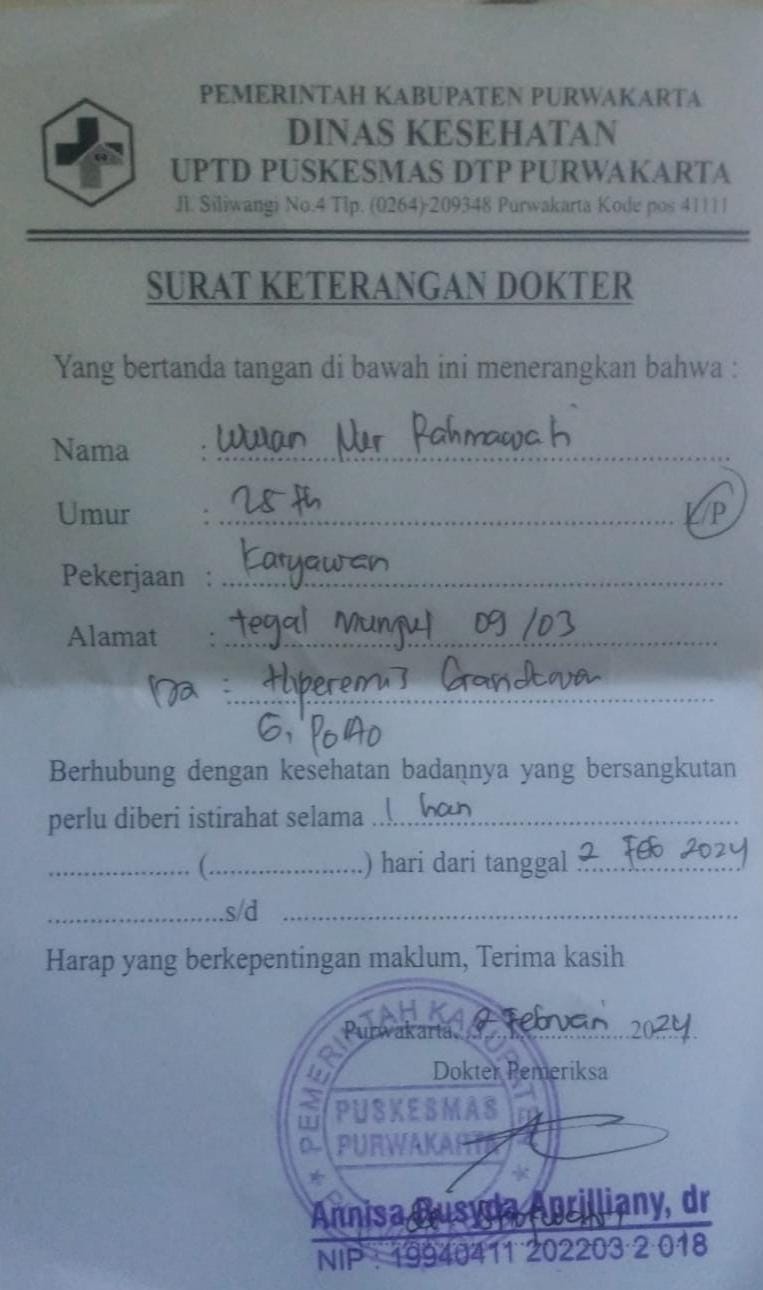 PEMERINTAH KABUPATEN PURWAKARTA
DINAS KESEHATAN
UPTD PUSKESMAS DTP PURWAKARTA
Jl. Siliwangi No.4 Tlp. (0264)-209348 Purwakarta Kode pos 41111
SURAT KETERANGAN DOKTER
Yang bertanda tangan di bawah ini menerangkan bahwa :
Nama : Wulan Nur Rahmawati
Umur : 25 th L/P
Pekerjaan : Karyawan
Alamat : tegal mungul 09/03
Da : Hiperemis Gravidarum
G1 P0A0
Berhubung dengan kesehatan badannya yang bersangkutan
perlu diberi istirahat selama 1 hari
(....................) hari dari tanggal 2 Feb 2024
s/d
Harap yang berkepentingan maklum, Terima kasih
Purwakarta, 2 Februari 2024
Dokter Pemeriksa
PEMERINTAH KABUPATEN
PUSKESMAS
PURWAKARTA
Annisa Rusyda Aprilliany, dr
NIP : 19940411 202203 2 018